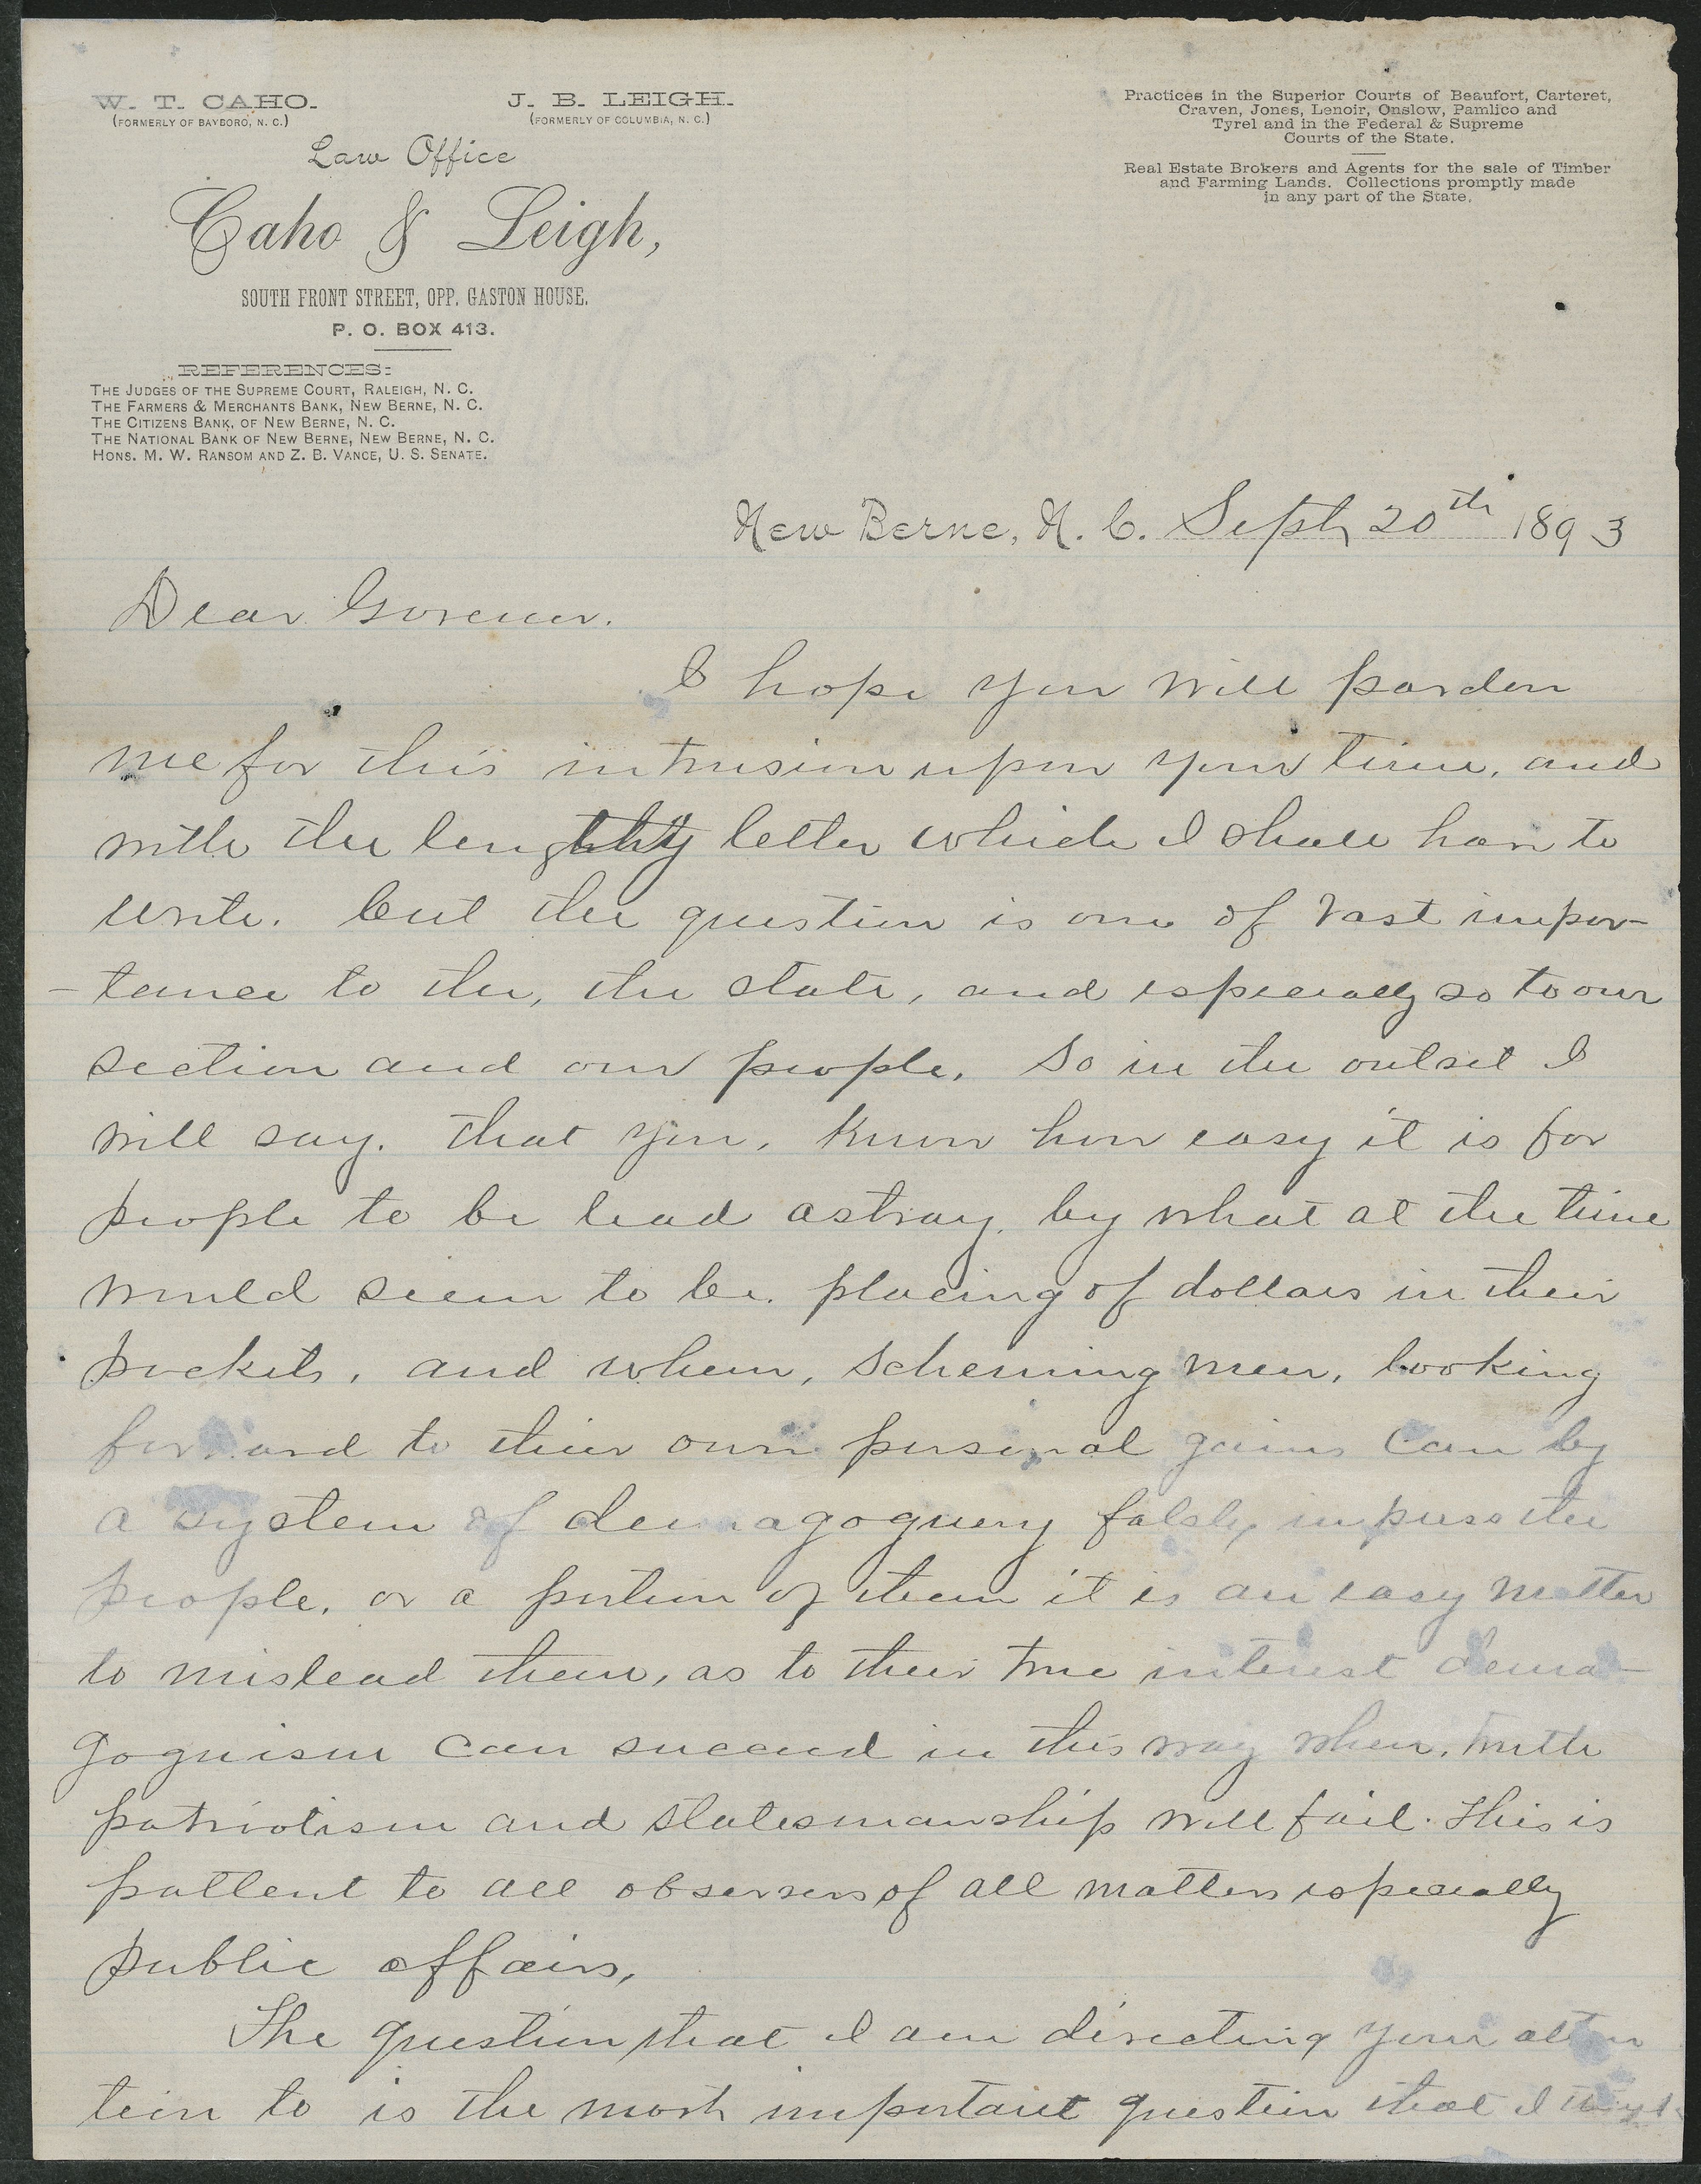 W. T. CAHO.
(FORMERLY OF BAYBORO, N. C.)
J. B. LEIGH.
(FORMERLY OF COLUMBIA, N. C.)
Law Office
Caho & Leigh,
SOUTH FRONT STREET, OPP. GASTON HOUSE.
P. O. BOX 413.
REFERENCES:
THE JUDGES OF THE SUPREME COURT, RALEIGH, N. C.
THE FARMERS & MERCHANTS BANK, NEW BERNE, N. C.
THE CITIZENS BANK, OF NEW BERNE, N. C.
THE NATIONAL BANK OF NEW BERNE, NEW BERNE, N. C.
HONS. M. W. RANSOM AND Z. B. VANCE, U. S. SENATE.
Practices in the Superior Courts of Beaufort, Carteret,
Craven, Jones, Lenoir, Onslow, Pamlico and
Tyrel and in the Federal & Supreme
Courts of the State.
Real Estate Brokers and Agents for the sale of Timber
and Farming Lands. Collections promptly made
in any part of the State.
New Berne, N. C. Sept 20th 1893
Dear Governor.
I hope you will pardon
me for this intrusion upon your time, and
with the lengthty letter which I shall have to
write. but the question is one of vast impor-
-tance to the, the state, and especially so to our
section and our people. So in the outset I
will say. that you, know how easy it is for
people to be lead astray, by what at the time
would seem to be. placing of dollars in their
pockets, and when, scheming men, looking
forward to their own personal gains can by
a system of demagoguery falsly impress the
people, or a portion of them it is an easy matter
to mislead them, as to their true interest dema-
goguism can succeed in this way when, truth
patriotism and statesmanship will fail. This is
pattent to all observers of all matters especially
public affairs,
The question that I am directing your atten
tion to is the most important question that I